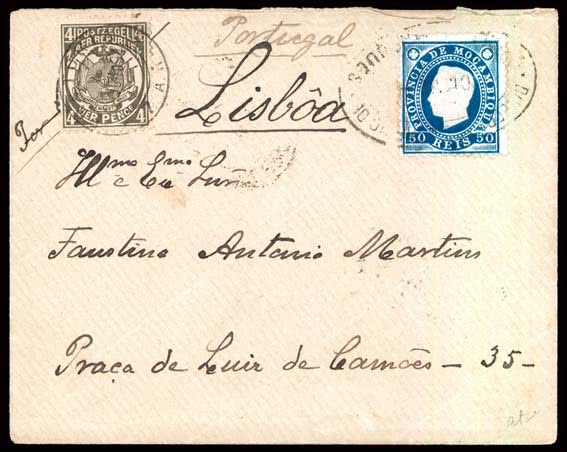 4 POSTZEGEL 4
Z. AFR. REPUBLIEK
VIER PENCE
4 4
Portugal
PROVINCIA DE MOÇAMBIQUE
50 REIS 50
Lisbôa
Illmo e Exmo Snr
Faustino Antonio Martins
Praça de Luiz de Camões - 35 -